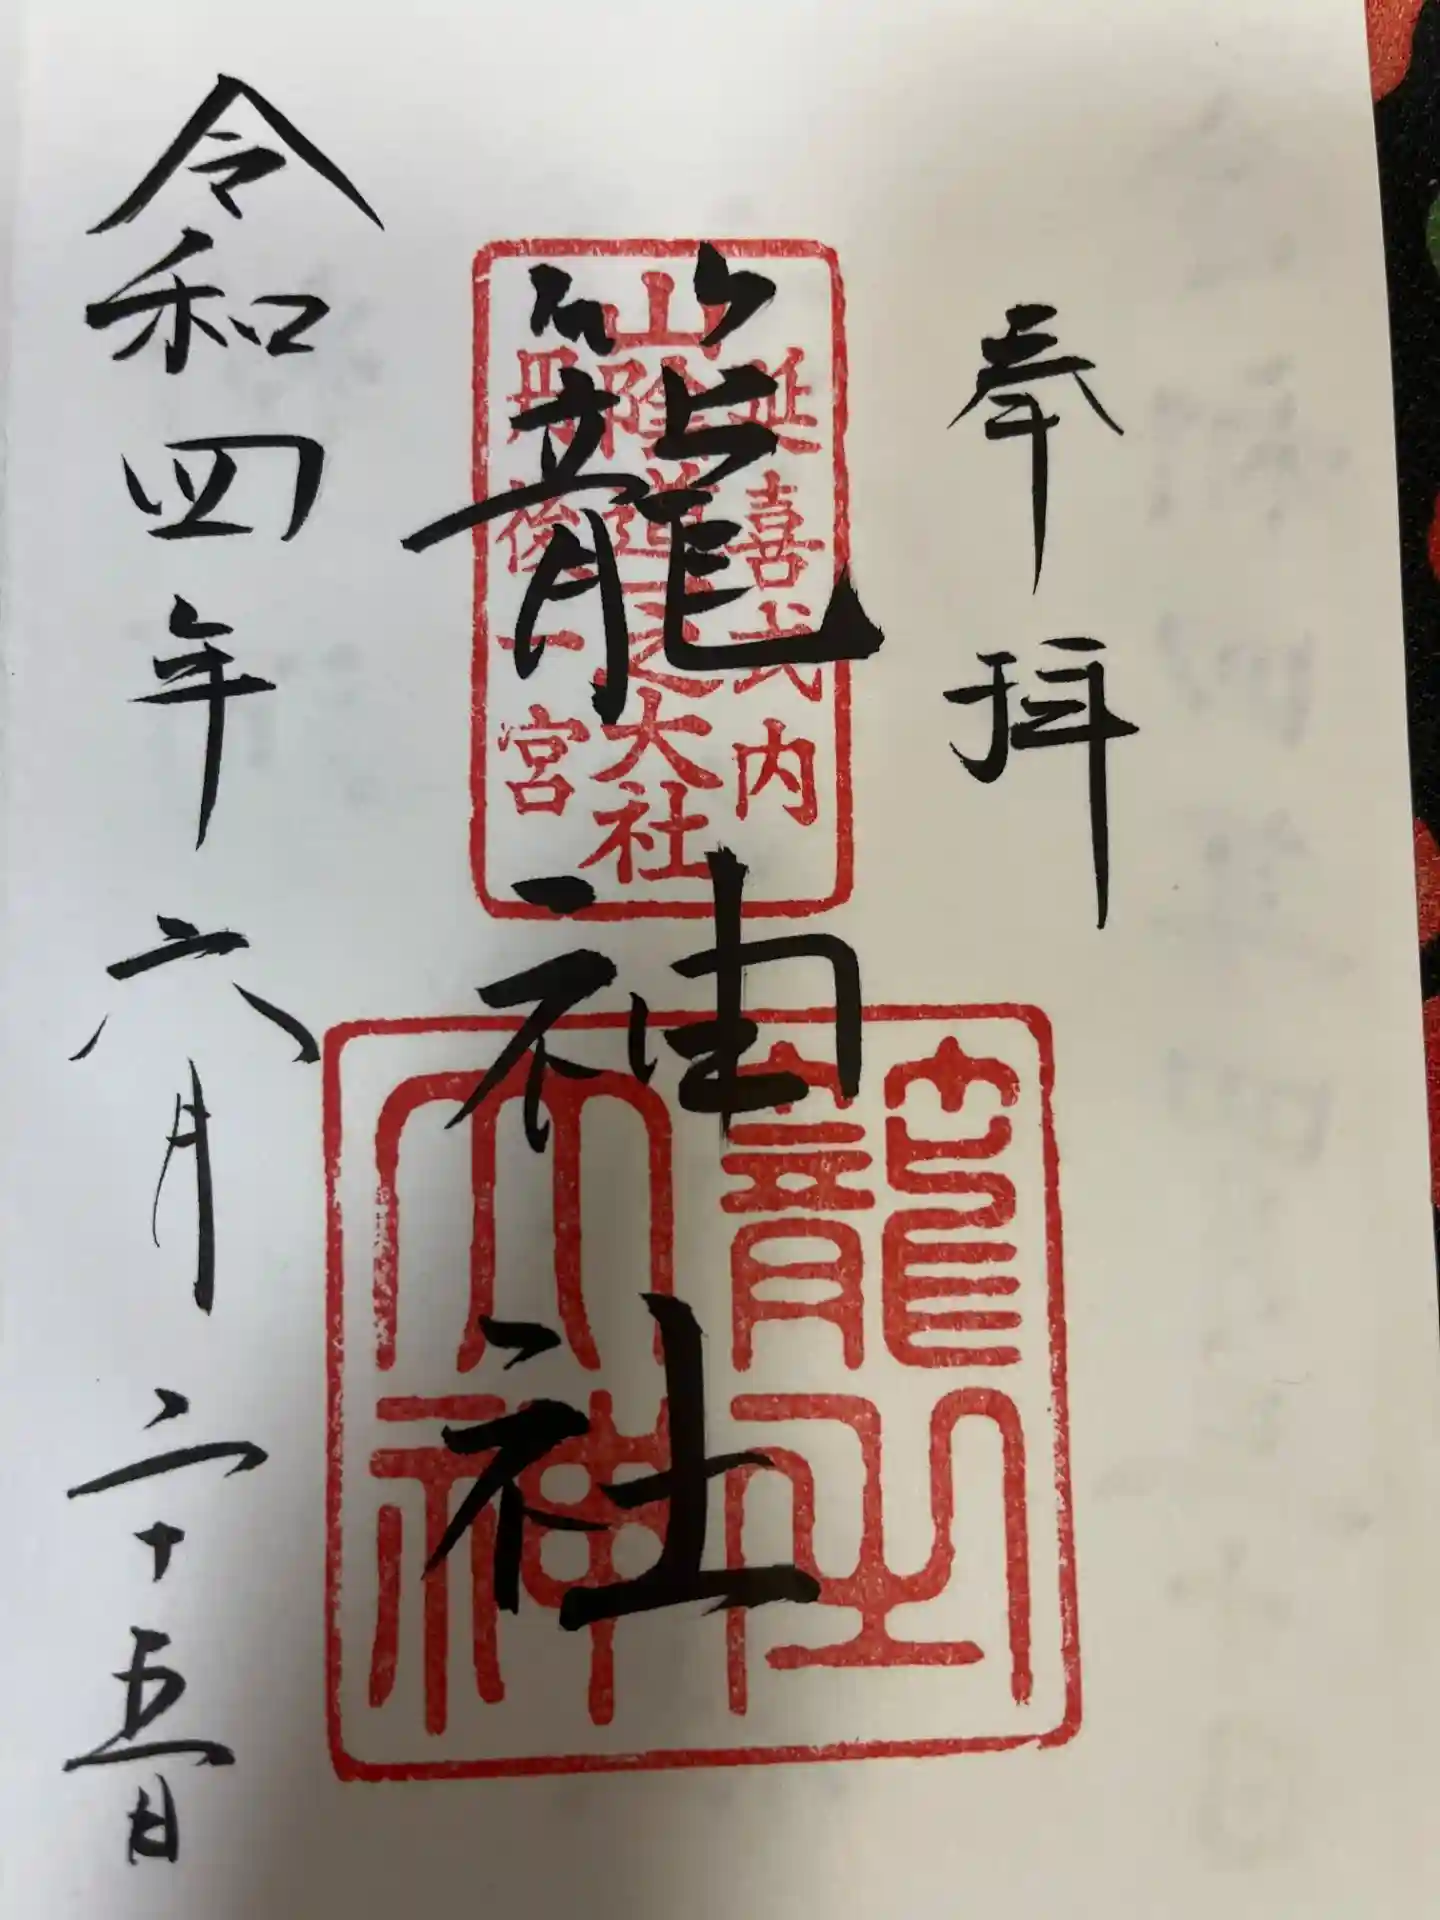 奉拝
延喜式内
山陰道之大社
丹後一宮
籠神社
籠之大神
令和四年六月二十五日